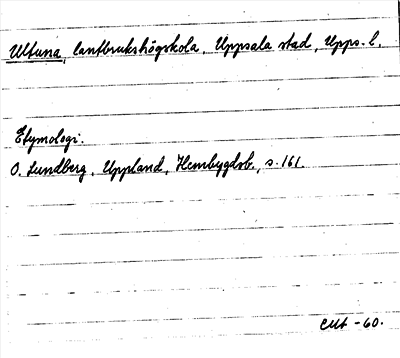 Ultuna, lantbrukshögskola, Uppsala stad, Upps. l.
Etymologi.
O. Lundberg, Uppland, Hembygdsb., s. 161
-60.